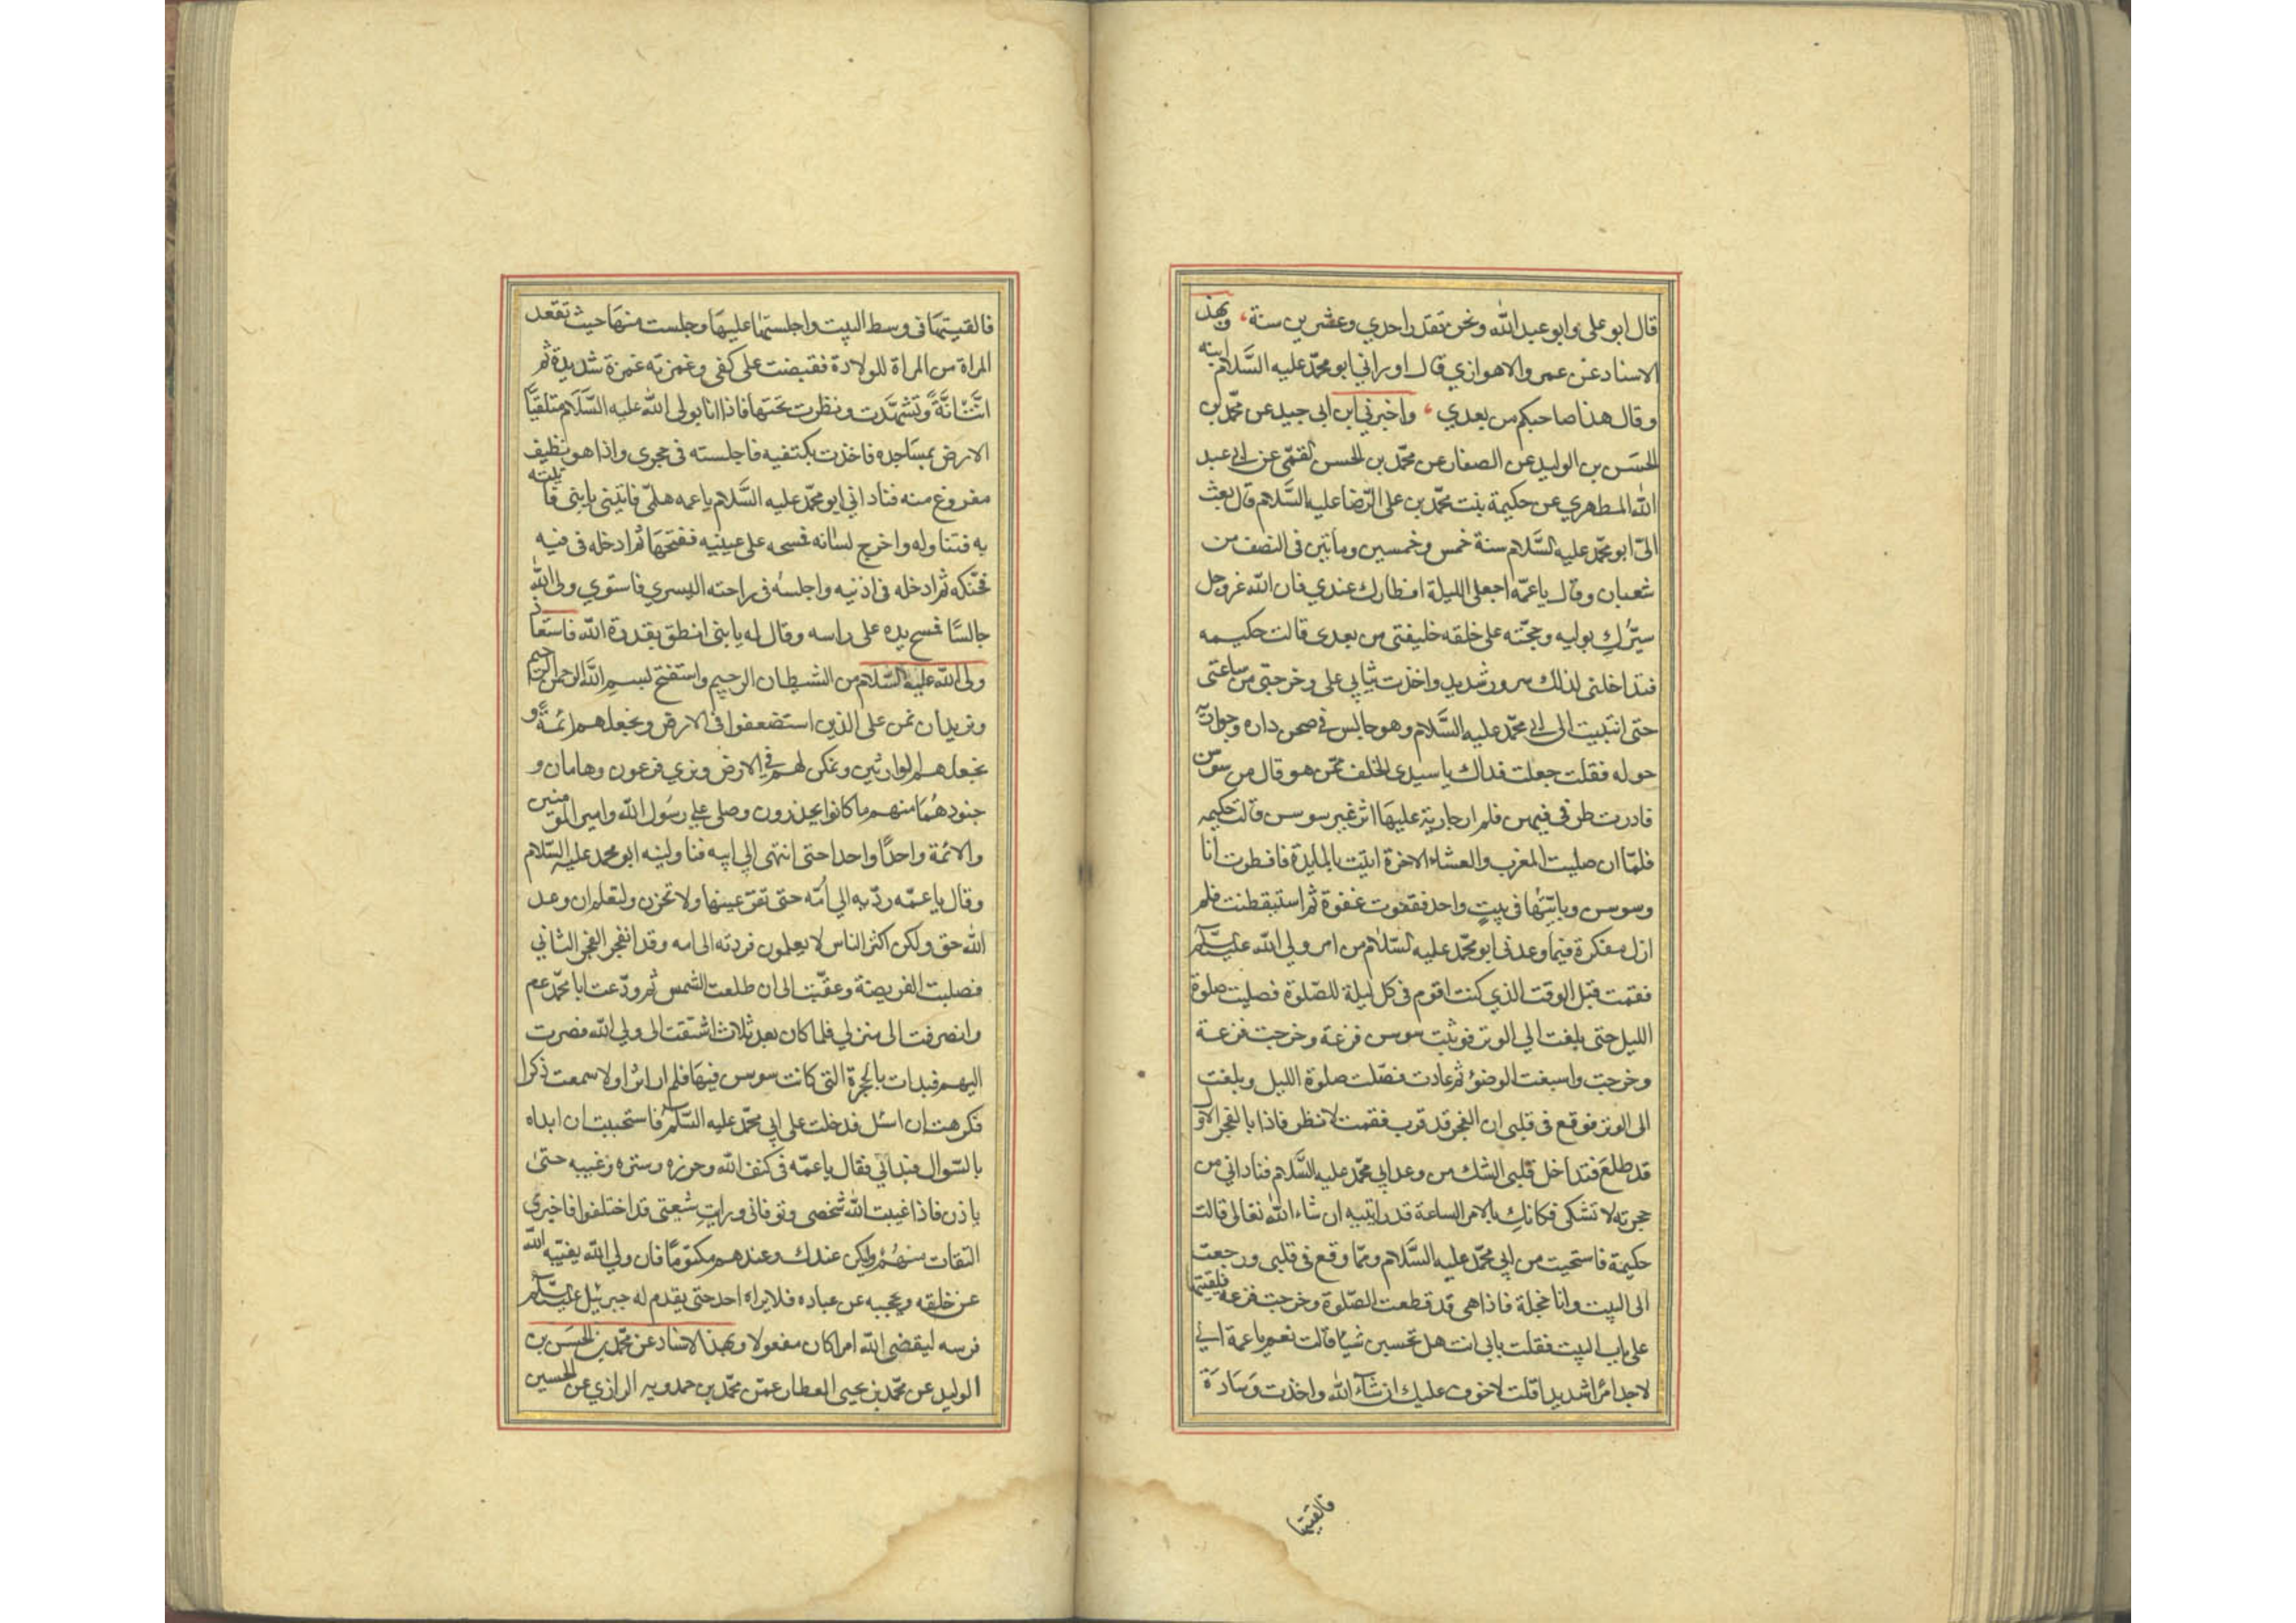 قال ابو علی وابو عبد الله ونحن نقدر احدي وعشرین سنة، وبهذ
الاسناد عن عمرو الاهوازي قال اوراني ابو محمّد علیه السَّلام ابنه
وقال هذا صاحبکم من بعدي، واخبرني ابن ابی جید عن محمّد بن
الحسَن بن الولید عن الصفار عن محمّد بن الحسن القمّی عن ابي عبد
الله المطهري عن حکیمة بنت محمّد بن علی الرّضا علیه السَّلام قال بعث
الیّ ابو محمّد علیه السَّلام سنة خمس وخمسین ومأتین فی النصف من
شعبان وقال یا عمّه اجعلی اللیلة افطارك عندي فان الله عز وجل
سیَسُرُّكِ بولیه وحجّته علی خلقه خلیفتی من بعدی قالت حکیمه
فتداخلنی لذلك سرور شدید واخذت ثیابي علی وخرجتی من ساعتی
حتی انتهیت الی ابي محمّد علیه السَّلام وهو جالس في صحن داره وجواریه
حوله فقلت جعلت فداك یا سیدی الخلف ممّن هو قال من سوسن
فادرت طرفی فیهن فلم ار جاریة علیهَا اثر غیر سوسن قالت حکیمه
فلمّا ان صلیت المغرب والعشاء الاخرة اتیت بالمایدة فافطرت انا
وسوسن وبایتّهَا فی بیتٍ واحد فغفوت غفوة ثم استیقظت فلم
ازل مفکرة فیما وعدنی ابو محمّد علیه السّلام من امر ولي الله علیه السّلم
فقمت قبل الوقت الذي کنت اقوم فی کل لیلة للصّلوة فصلیت صلوة
اللیل حتی بلغت الي الوتر فوثبت سوسن فزعة وخرجت فزعة
وخرجت واسبغت الوضوء ثم عادت فصلت صلوة اللیل وبلغت
الی الوتر فوقع فی قلبی ان الفجر قد قرب فقمت لانظر فاذا بالفجر الاول
قد طلعَ فتداخل قلبی الشك من وعد ابي محمّد علیه السَّلام فناداني من
حجرته لا تشکی فکانكِ بالامر الساعة قد رایتیه ان شاء الله تعالی قالت
حکیمة فاستحیت من ابي محمّد علیه السَّلام وممّا وقع فی قلبی ورجعت
الی البیت وانا خجلة فاذا هی قد قطعت الصّلوة وخرجت فزعة فلقیتها
علی باب البیت فقلت بابي انت هل تحسین شیئا قالت نعم یا عمة انی
لاجد امرًا شدیدا قلت لا خوف علیك ان شآء الله واخذت وسَادَة
فالقیتها
فالقیتهَا فی وسط البیت واجلستهَا علیهَا وجلست منهَا حیث تقعد
المراة من المراة للولادة فقبضت علی کفی وغمزته غمزة شدیدة ثم
انَّت انَّةً وتشهَّدت ونظرت تحتهَا فاذا انا بولی الله علیه السَّلَام متلقیًا
الارض بمسَاجده فاخذت بکتفیه فاجلسته فی حجري واذا هو نظیف
مفروغ منه فناداني ابو محمّد علیه السَّلام یا عمه هلمّی فاتینی بابنی فاتیته
به فتناوله واخرج لسانه فمسحه علی عینیه ففتحهَا ثم ادخله فی فیه
فحنّکه ثم ادخله فی اذنیه واجلسَه فی راحته الیسري فاستوي ولی الله
جالسًا فمسح یده علی راسه وقال له یا بنی انطق بقدرة الله فاستعاذ
ولی الله علیه السَّلام من الشیطان الرجیم واستفتح بسمِ الله الرحمن الرحیم
ونرید ان نمن علی الذین استضعفوا فی الارض ونجعلهم ائمةً و
نجعلهم الوارثین ونمکن لهم في الارض ونري فرعون وهامان و
جنودهُمَا منهم ما کانوا یحذرون وصلی علي رسُول الله وامیر المومنین
والائمة واحدًا واحدا حتی انتهی الي ابیه فناولنیه ابو محمد علیه السّلام
وقال یا عمّه ردّیه الي اُمّه حتی تقرّ عینها ولا تحزن ولتعلم ان وعد
الله حق ولکن اکثر الناس لا یعلمون فرددته الی امه وقد انفجر الفجر الثاني
فصلیت الفریضة وعقّبت الی ان طلعت الشمس ثم ودّعت ابا محمّد عم
وانصرفت الی منزلي فلما کان بعد ثلاث اشتقت الی ولي الله فصرت
الیهم فبدات بالحجرة التی کانت سوسن فیهَا فلم ار اثرا ولا سمعت ذکرا
فکرهت ان اسئل فدخلت علی ابي محمّد علیه السَّلم فاستحییت ان ابداه
بالسّوال فبداني فقال یا عمّه في کنف الله وحرزه وستره وغیبه حتیٰ
یاذن فاذا غیبت الله شخصی وتوفانی ورایتِ شیعتی قد اختلفوا فاخبری
الثقات منهُم ولیکن عندك وعندهم مکتومًا فان ولي الله یغیّبه الله
عن خلقه ویحجبه عن عباده فلا یراه احد حتی یقدم له جبرئیل علیه السّلم
فرسه لیقضی الله امرا کان مفعولا وبهذا الاسناد عن محمّد بن الحسَن بن
الولید عن محمّد بن یحیی العطار عن محمّد بن حمدویه الرازي عن الحسین